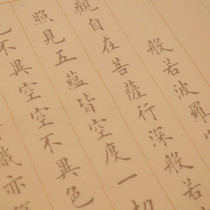 般若波羅
觀自在菩薩行深般若
照見五蘊皆空度一切
不異空空不異色
識亦